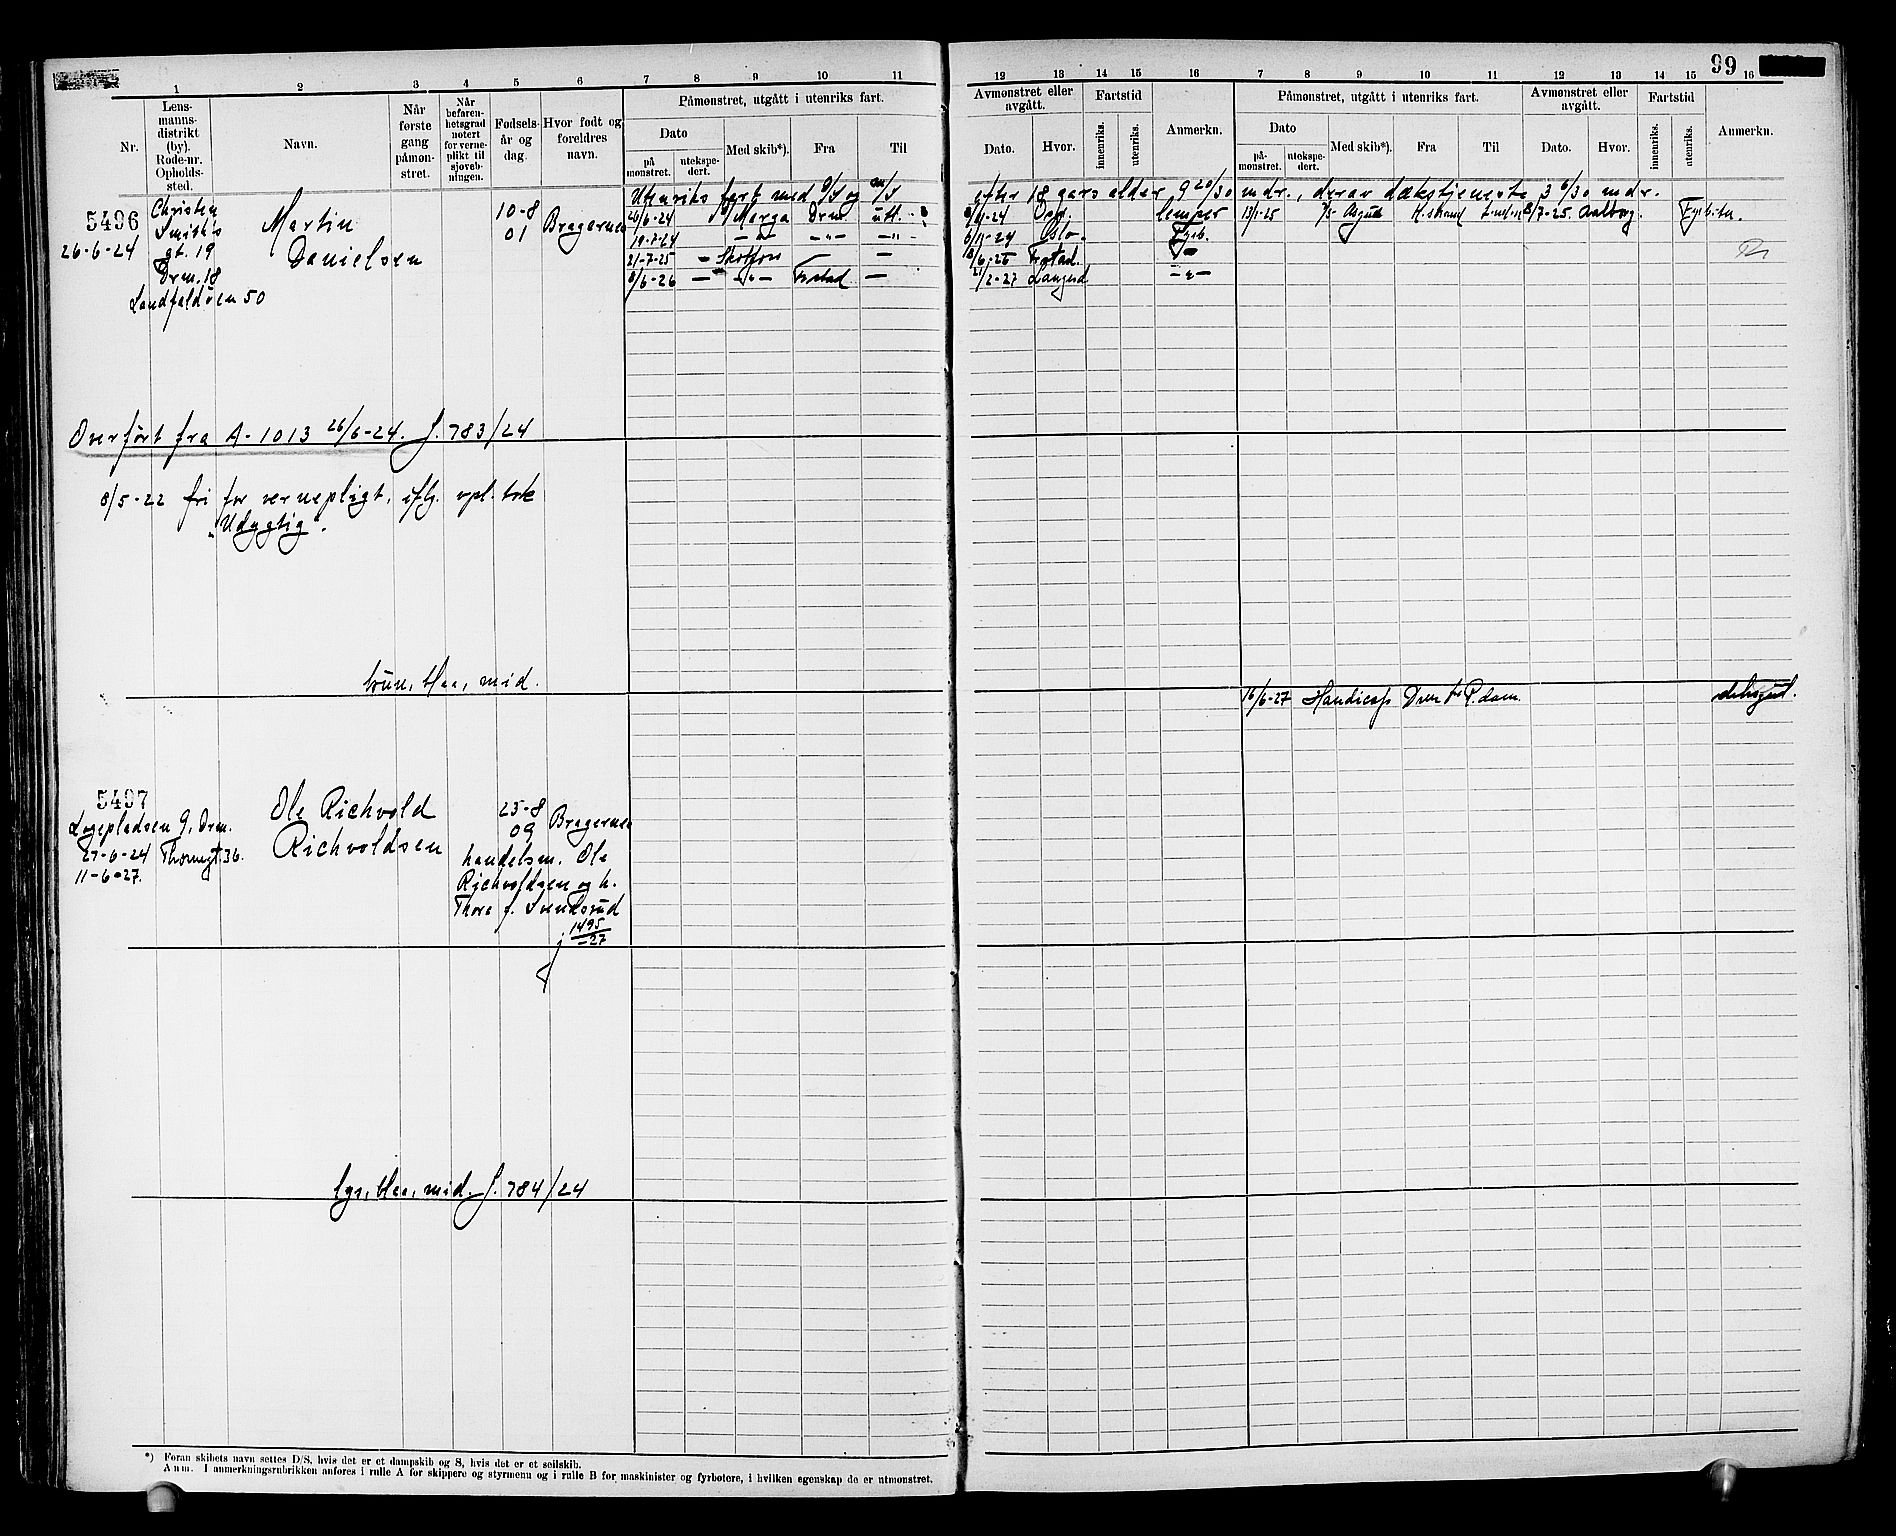 99
1 2 3 4 5 6 7 8 9 10 11
Nr.
Lens-
manns-
distrikt
(by).
Rode-nr.
Opholds-
sted.
Navn.
Når
første
gang
påmøn-
stret.
Når
befaren-
hetsgrad
notert
for verne-
plikt til
sjøveb-
ningen.
Fødsels-
år og
dag.
Hvor født og
foreldres
navn.
Påmønstret, utgått i utenriks fart.
Dato
på
mønstret.
utekspe-
dert.
Med skib*).
Fra
Til
12 13 14 15 16 7 8 9 10 11 12 13 14 15 16
Avmønstret eller
avgått.
Dato.
Hvor.
Fartstid
innenriks.
utenriks.
Anmerkn.
Påmønstret, utgått i utenriks fart.
Dato
på-
mønstret.
utekspe-
dert.
Med skib*).
Fra
Til
Avmønstret eller
avgått.
Dato.
Hvor.
Fartstid
innenriks.
utenriks.
Anmerkn.
Utenriks fart med D/S og M/S efter 18 aars alder 9 20/30 mdr., derav dækstjeneste 3 6/30 mdr.
5496
26-6-24
Christen
Smiths
gt. 19
Drm. 18
Landfaldøen 50
Martin
Danielsen
10-8
01
Bragernes
26/6-24 Marga Drm utl.
19-7-24 -"- -"- -"-
21-7-25 - Skotfoss - -
8/6-26 - -"- Frstad -
lemper
6/11-24 Oslo. Fyrb.
Frstad.
21/2-27 Langesd -"-
13/1-25 Asgud H.strand 8/7-25. Aalborg. Fyrbøtn.
Overført fra A-1013 26/6-24. J. 783/24
8/5-22 fri for vernepligt, iflg. opl. bok
"Udygtig".
brun, blaa, mid.
16/6-27 Handicap Drm t R.dam.
5497
Løgepladsen 9, Drm.
27-6-24 Thornegt. 36.
11-6-27.
Ole Richvold
Richvoldsen
25-8
09
Bragernes
handelsm. Ole
Richvoldsen og h.
Thora f. Svendsrud
j 1495
-27
lys, blaa, mid. J. 784/24
*) Foran skibets navn settes D/S, hvis det er et dampskib og S, hvis det er et seilskib.
Anm. I anmerkningsrubrikken anføres i rulle A for skippere og styrmenn og i rulle B for maskinister og fyrbøtere, i hvilken egenskap de er utmønstret.